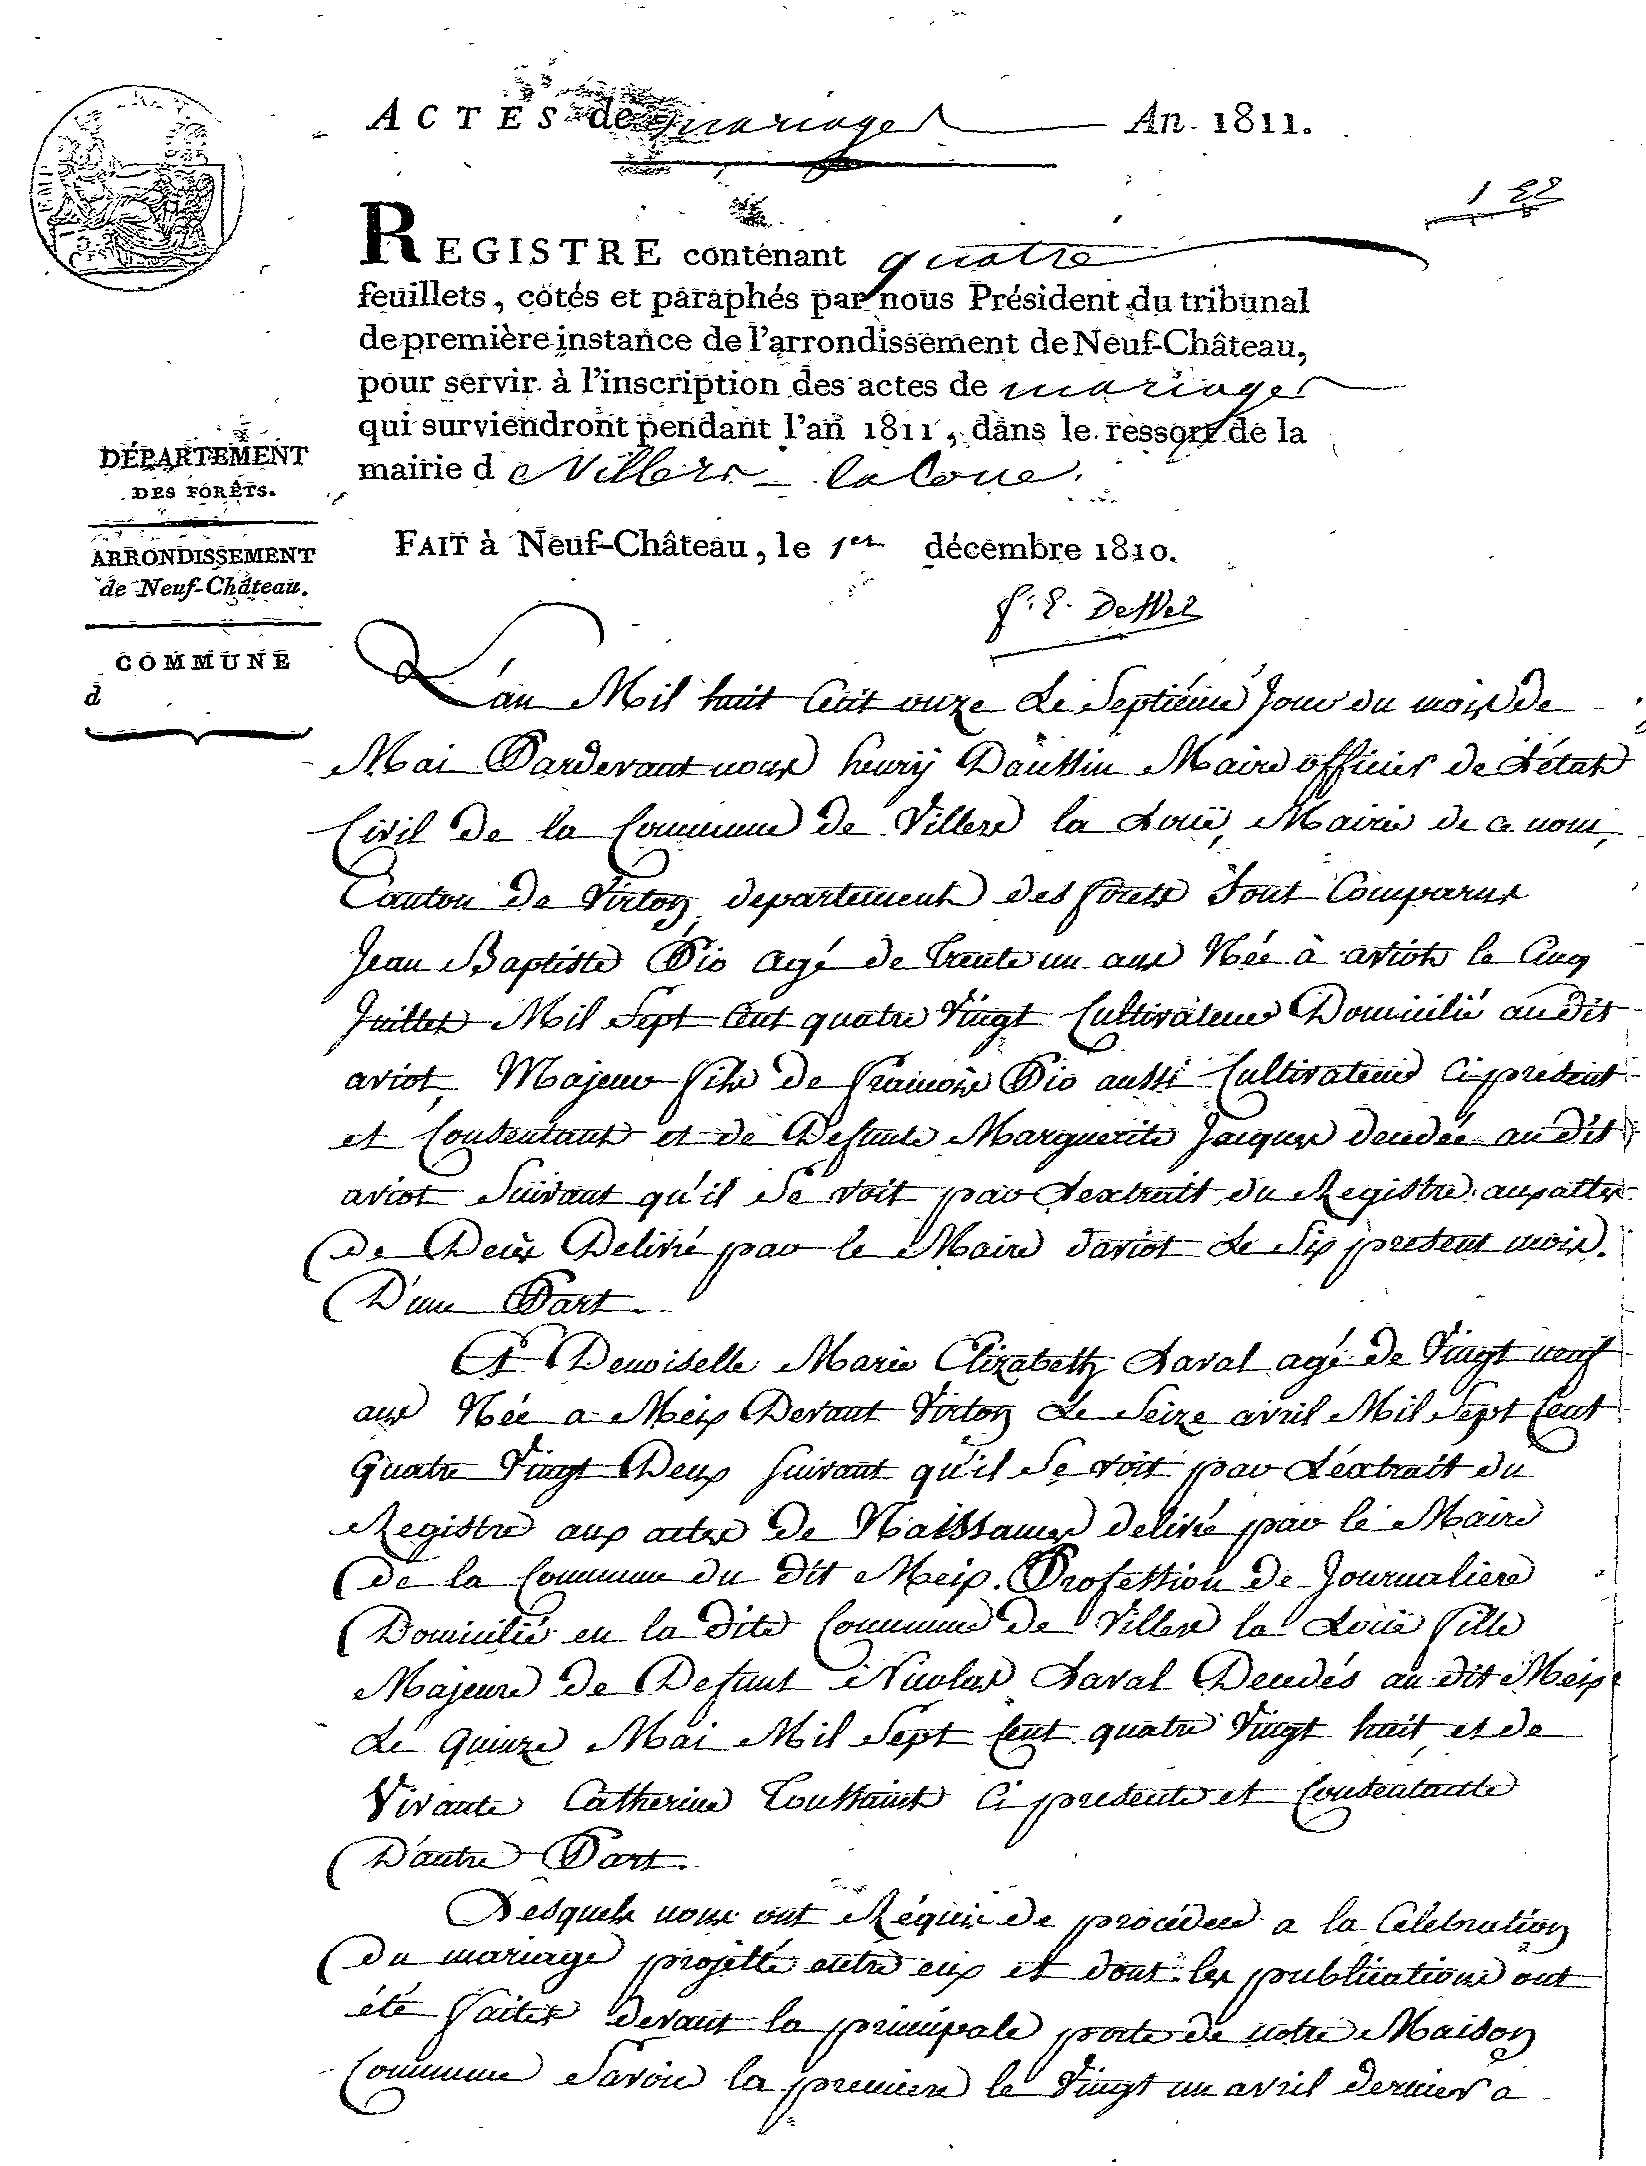 ACTES de mariages An 1811.
1 22
REGISTRE contenant quatre
feuillets, cotés et paraphés par nous Président du tribunal
de première instance de l'arrondissement de Neuf-Château,
pour servir à l'inscription des actes de mariages
qui surviendront pendant l'an 1811, dans le ressort de la
mairie d e Villers la loue.
DÉPARTEMENT
DES FORÊTS.
ARRONDISSEMENT
de Neuf-Château.
COMMUNE
d
FAIT à Neuf-Château, le 1er décembre 1810.
L'an Mil huit Cent onze Le Septième Jour du mois de
Mai Pardevant nous henrÿ Maire officier de L'état
Civil de la Commune de Villers la Louë, Mairie de ce nom,
Canton de Virton departement des forets Sont Comparus
Jean Baptiste Pio agé de Trente un ans Née à avioth le Cinq
Juillet Mil Sept Cent quatre Vingt Cultivateur Domicilié au dit
aviot, Majeur fils de francois Pio aussi Cultivateur Ci present
et Consentant et de Defunte Marguerite Jacques decedée au dit
aviot Suivant qu'il Se voit par L'extrait du Registre aux attes
de Decès Delivré par le Maire d'aviot Le Six present mois.
D'une Part.
Et Demoiselle Marie Elizabeth Laval agé de Vingt neuf
ans Née a Meix Devant Virton Le Seize avril Mil Sept Cent
Quatre Vingt Deux suivant qu'il Se voit par L'éxtrait du
Registre aux actes de Naissances delivré par le Maire
de la Commune du dit Meix. Profession de Journaliere
Domicilié en la dite Commune de Villers la Louë fille
Majeure de Defunt Nicolas Laval Decedés au dit Meix
Le Quinze Mai Mil Sept Cent quatre Vingt huit, et de
Vivante Catherine Toussaint Ci presente et Consentante
D'autre Part.
Lesquels nous ont Réquis de procéder a la Célébration
du mariage projetté entre eux et dont les publications ont
été faites devant la principale porte de notre Maison
Commune Savoir la premiere le Vingt un avril dernier a